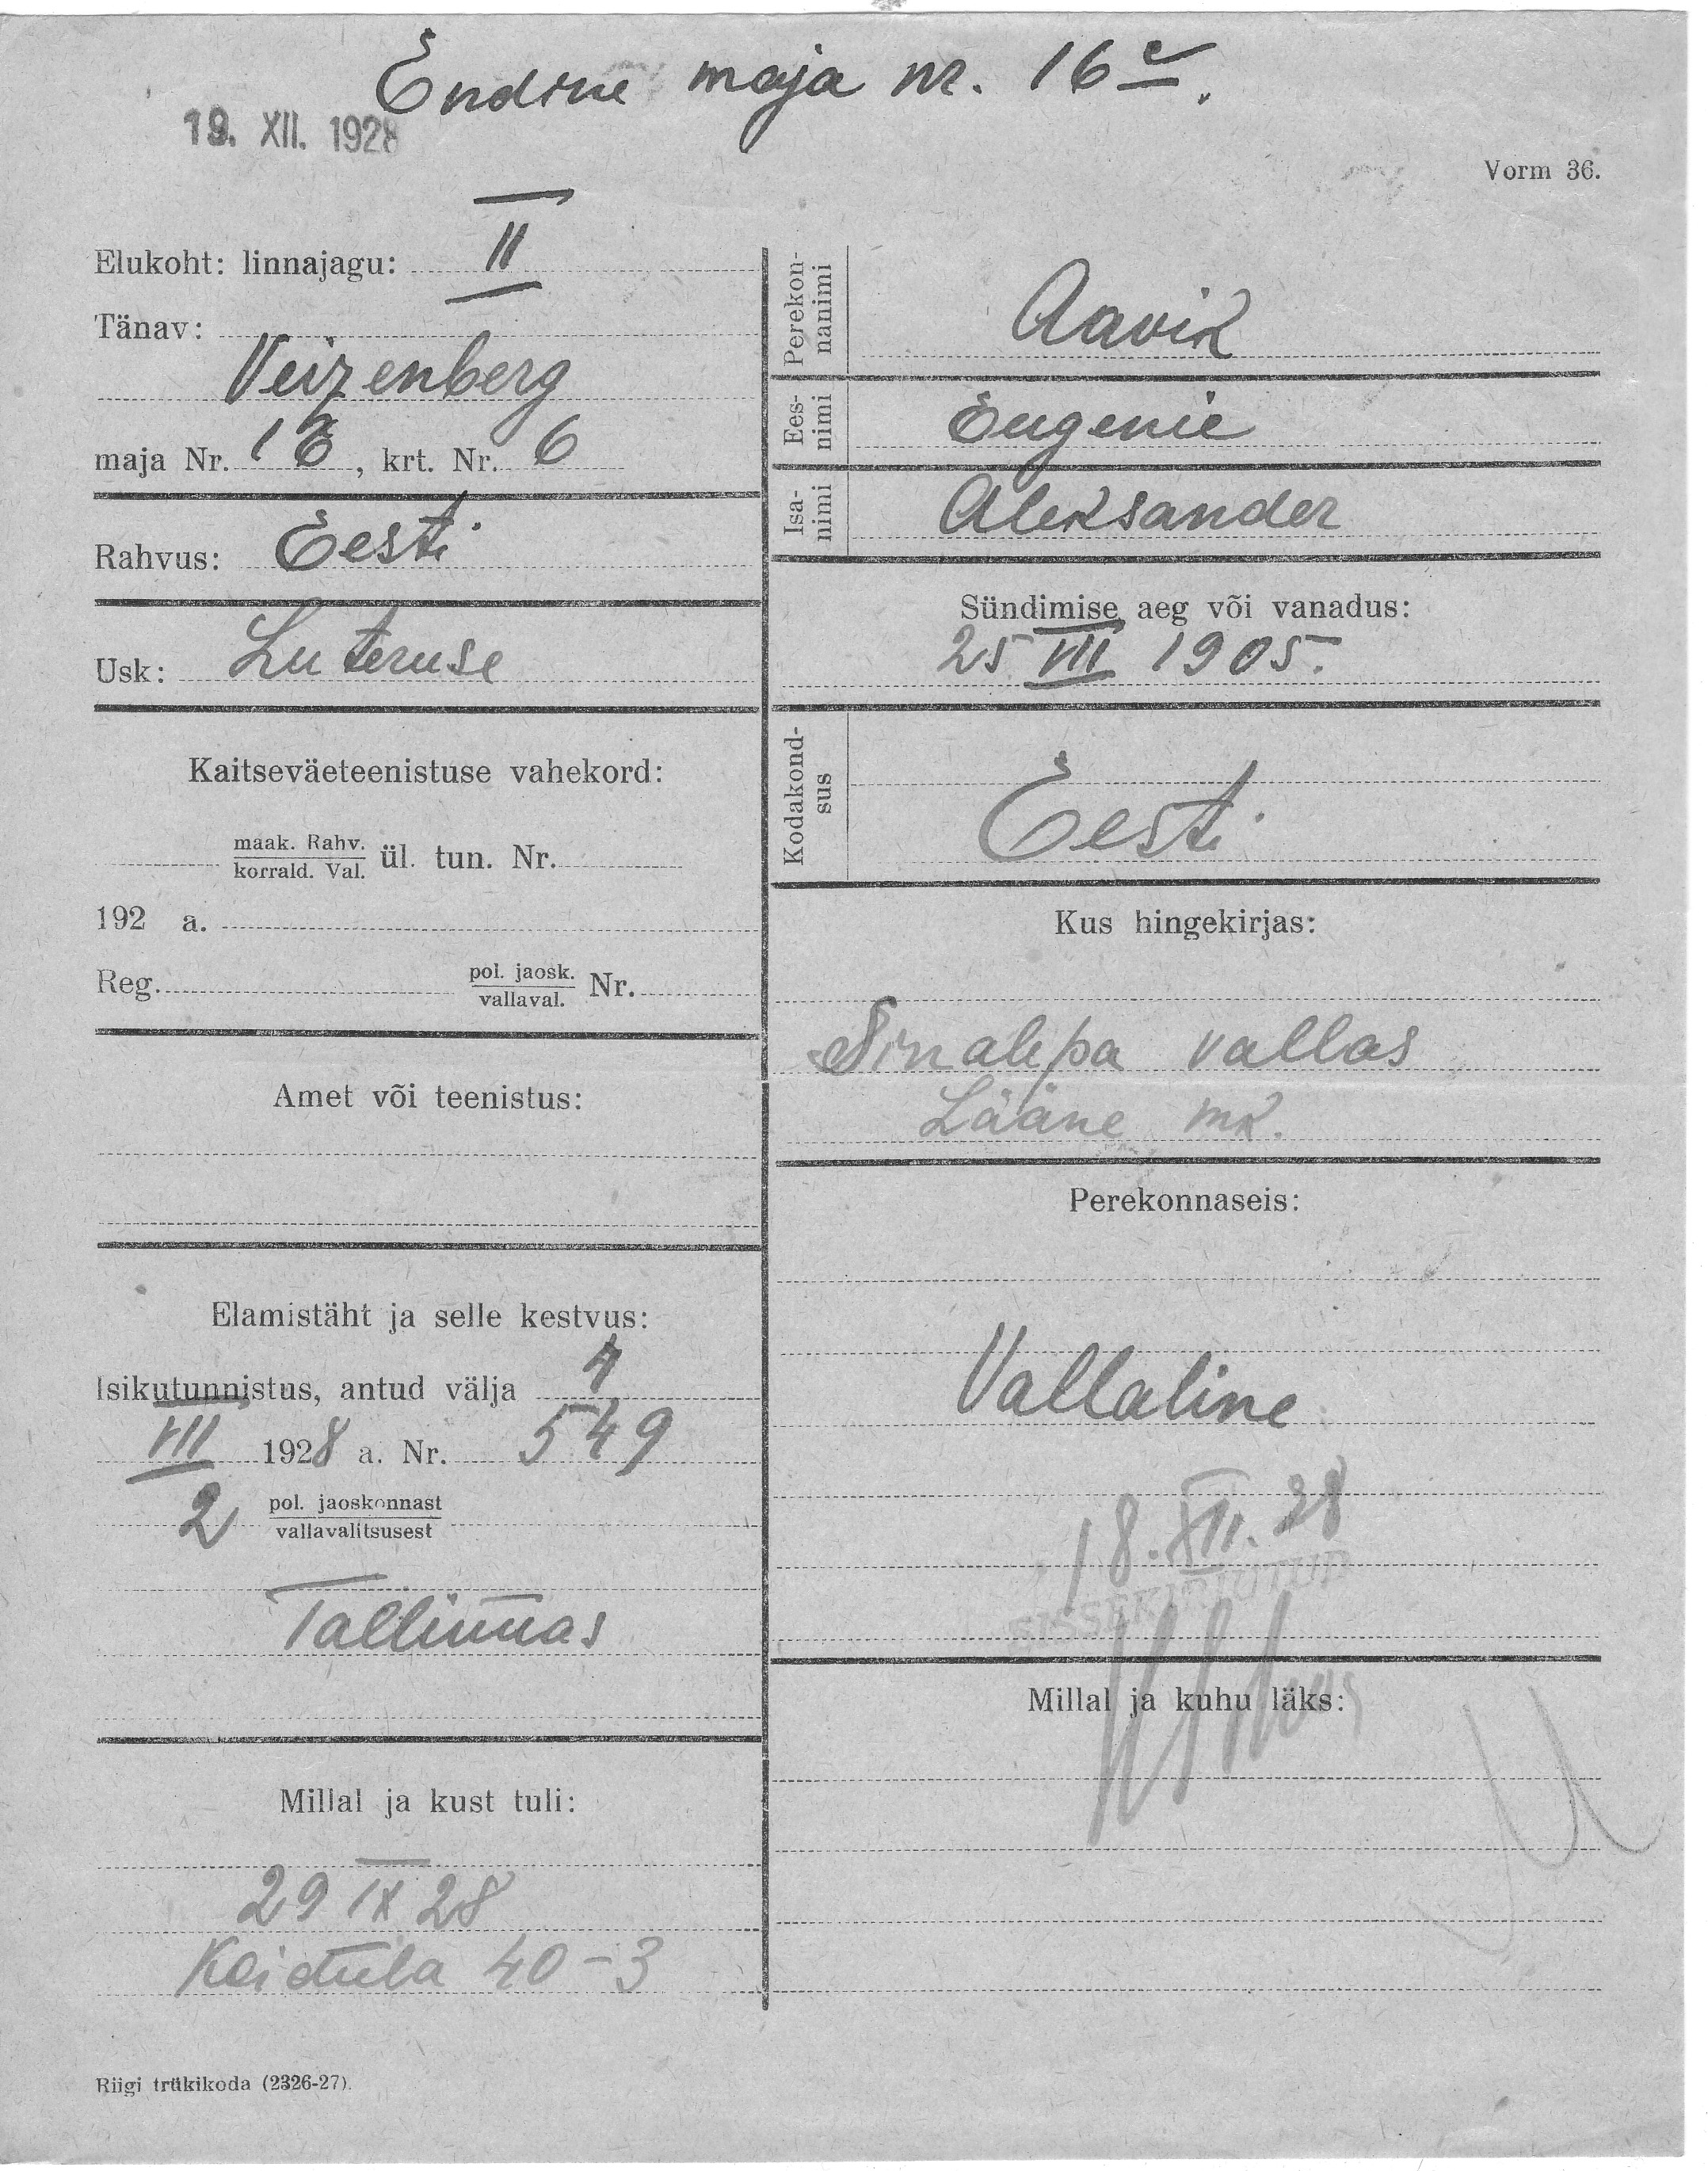 Endine maja nr. 16c.
19. XII. 1928
Vorm 36.
Elukoht: linnajagu: II
Tänav:
Veizenberg
maja Nr. 18, krt. Nr. 6
Rahvus: Eesti
Usk: Luteruse
Kaitseväeteenistuse vahekord:
maak. Rahv.
korrald. Val. ül. tun. Nr.
192 a.
Reg. pol. jaosk.
vallaval. Nr.
Amet või teenistus:
Elamistäht ja selle kestvus:
Isikutunnistus, antud välja 4
VII 1928 a. Nr. 549
2 pol. jaoskonnast
vallavalitsusest
Tallinnas
Millal ja kust tuli:
29 IX 28
Koidula 40-3
Riigi trükikoda (2326-27).
Perekon-
nanimi
Aavik
Ees-
nimi
Eugenie
Isa-
nimi
Aleksander
Sündimise aeg või vanadus:
25 VIII 1905.
Kodakond-
sus
Eesti
Kus hingekirjas:
Sinalepa vallas
Lääne mk.
Perekonnaseis:
Vallaline
18. XII. 28
SISSEKIRJUTUD
Millal ja kuhu läks: